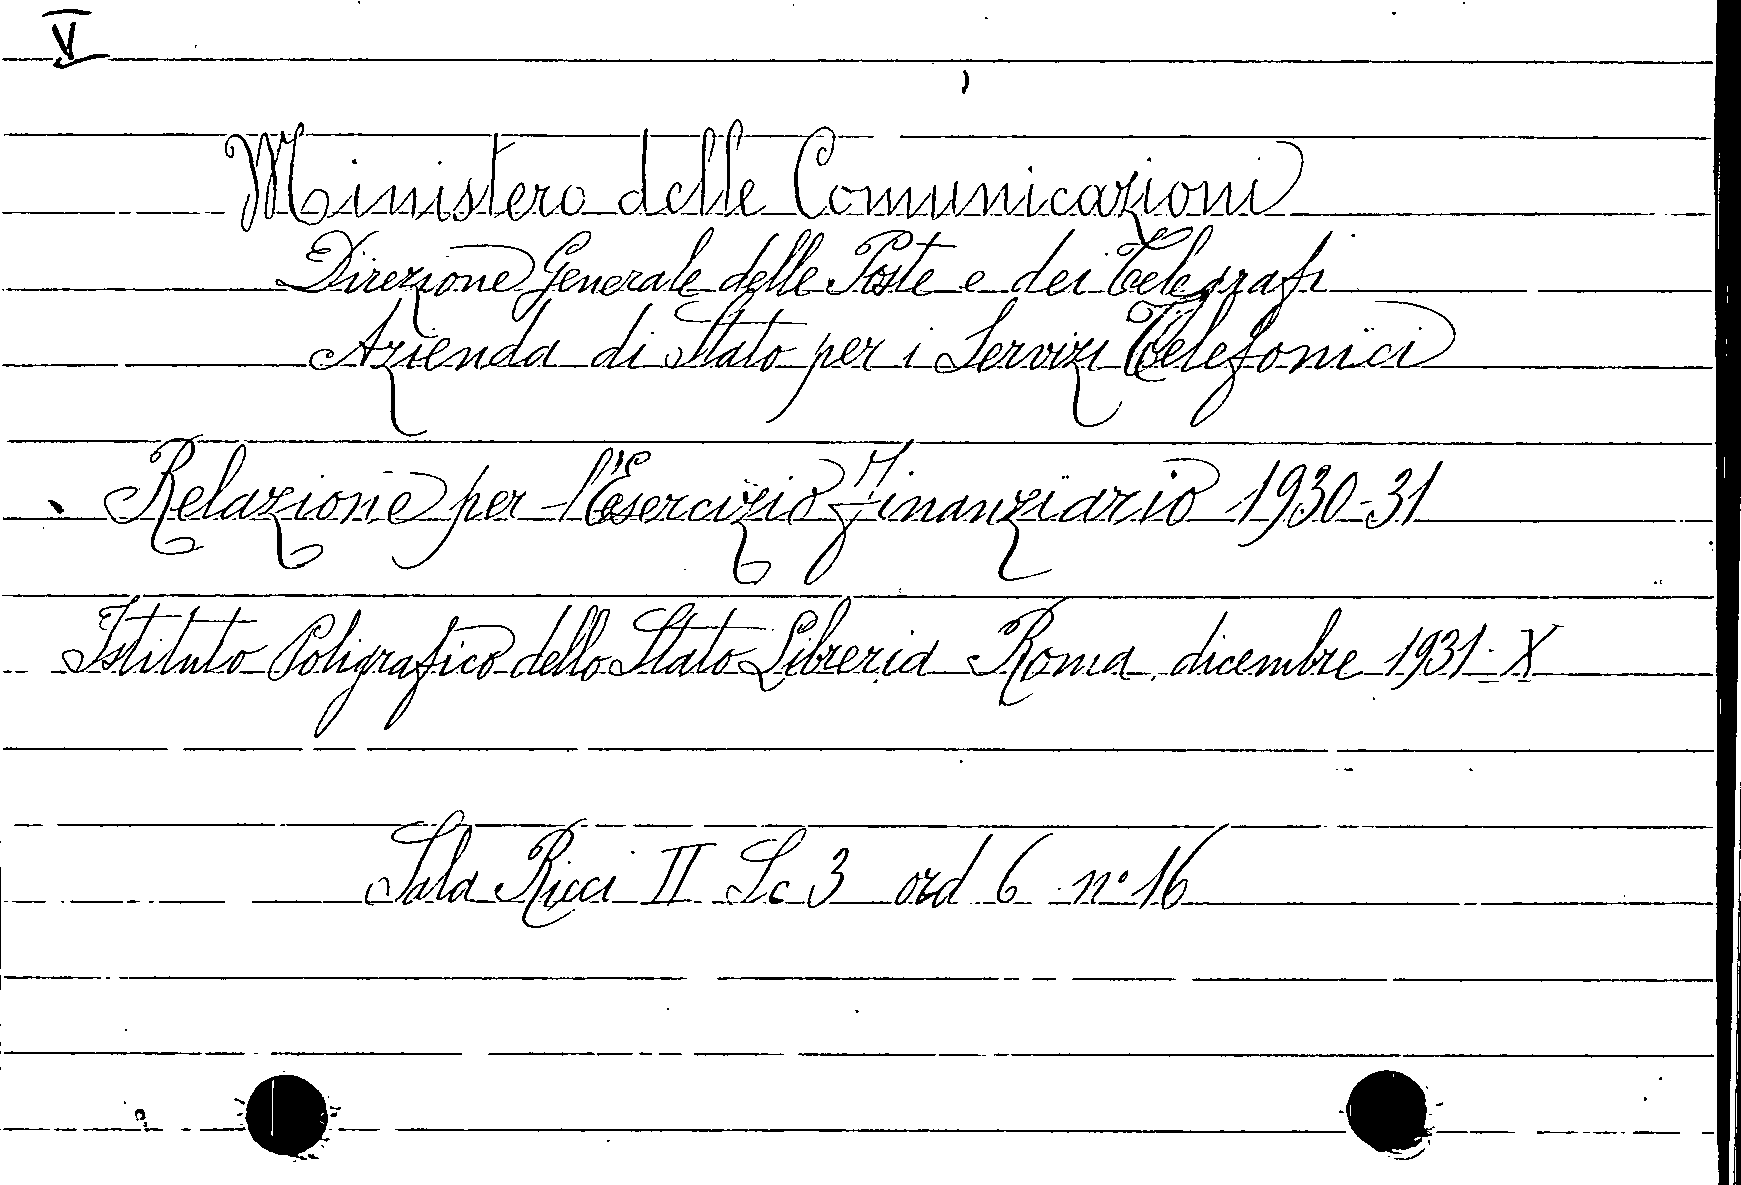 V
Ministero delle Comunicazioni
Direzione Generale delle Poste e dei Telegrafi
Azienda di Stato per i Servizi Telefonici
Relazione per l'Esercizio Finanziario 1930-31
Istituto Poligrafico dello Stato Libreria Roma, dicembre 1931·X
Sala Ricci II Sc 3 ord 6 n° 16